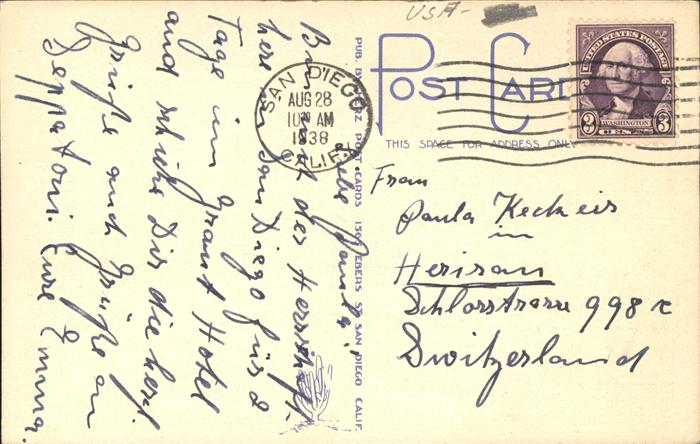 USA-
POST CARD
THIS SPACE FOR ADDRESS ONLY
SAN DIEGO
AUG 28
10 AM
1938
CALIF.
UNITED STATES POSTAGE
WASHINGTON
3 CENTS 3
PUB. BY POST CARDS EBERS ST. SAN DIEGO CALIF.
Liebe Paula!
Bin mit der Herrschaft
hier in San Diego für 2
Tage im Grant Hotel
und schicke Dir die herzl
Grüße auch Grüße an
Eure Emma.
Frau
Paula Keckeis
in
Herisau
Schlossstrasse 998
Switzerland